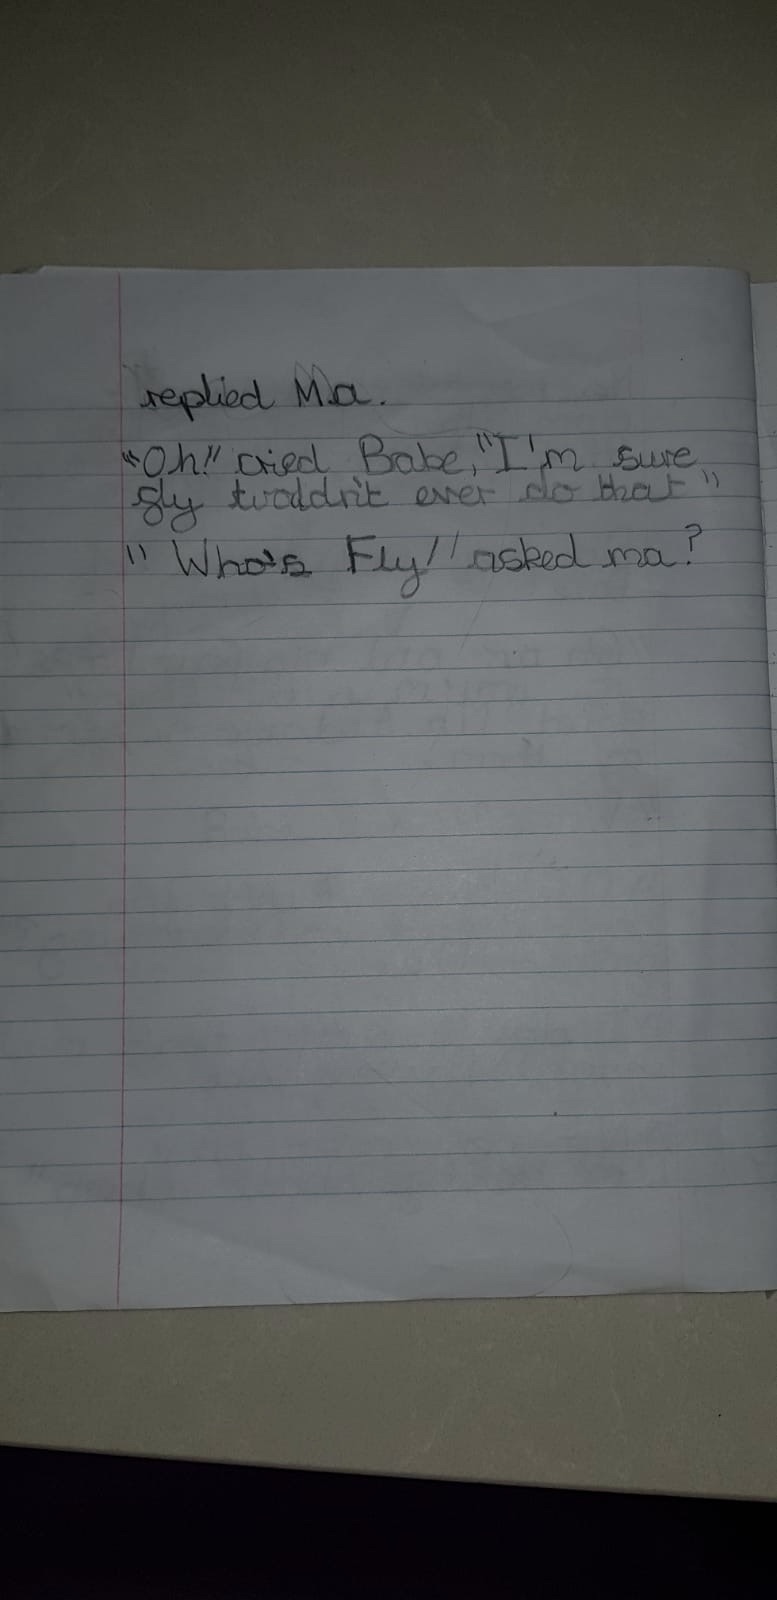 replied Ma.
"Oh!" cried Babe, "I'm sure
fly twoddn't ever do that"
"Who's Fly" asked ma?